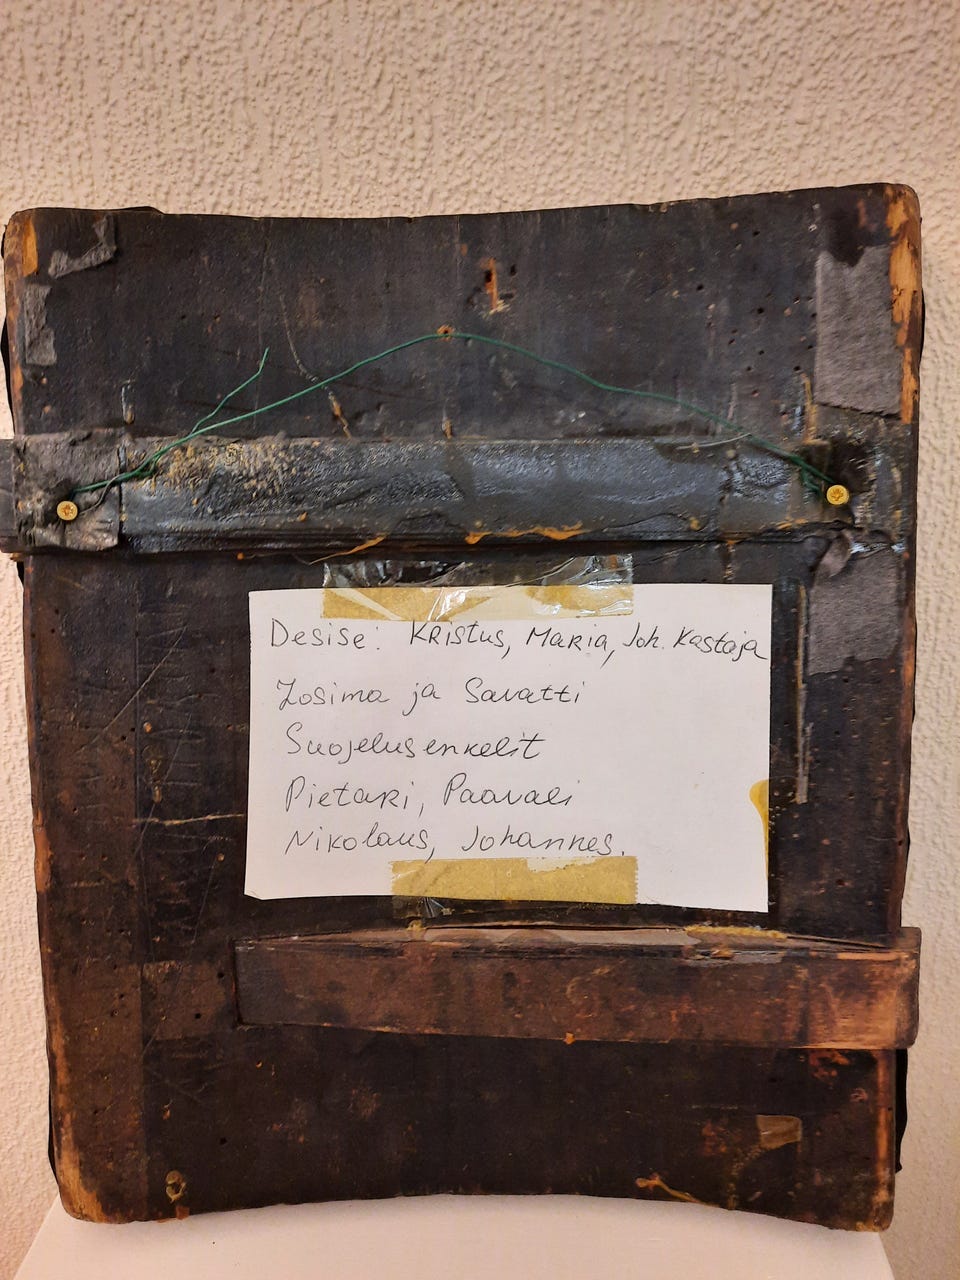 Desise: Kristus, Maria, Joh. Kastaja
Zosima ja Savatti
Suojelusenkelit
Pietari, Paavali
Nikolaus, Johannes.